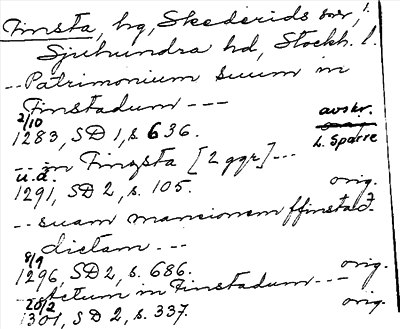 Finsta, hg, Skederids sn,
Sjuhundra hd, Stockh. l.
-- Patrimonium suum in
Finstadum ---
2/10 avskr.
1283, SD 1, s. 636. L. Sparre
-- in Finzsta [2 ggr] --
u.d.
1291, SD 2, s. 105. orig.
-- suam mansionem ffinstad
dictam ---
8/9
1296, SD 2, s. 686. orig.
-- actum in Finstadum ---
28/2
1301, SD 2, s. 337. orig.